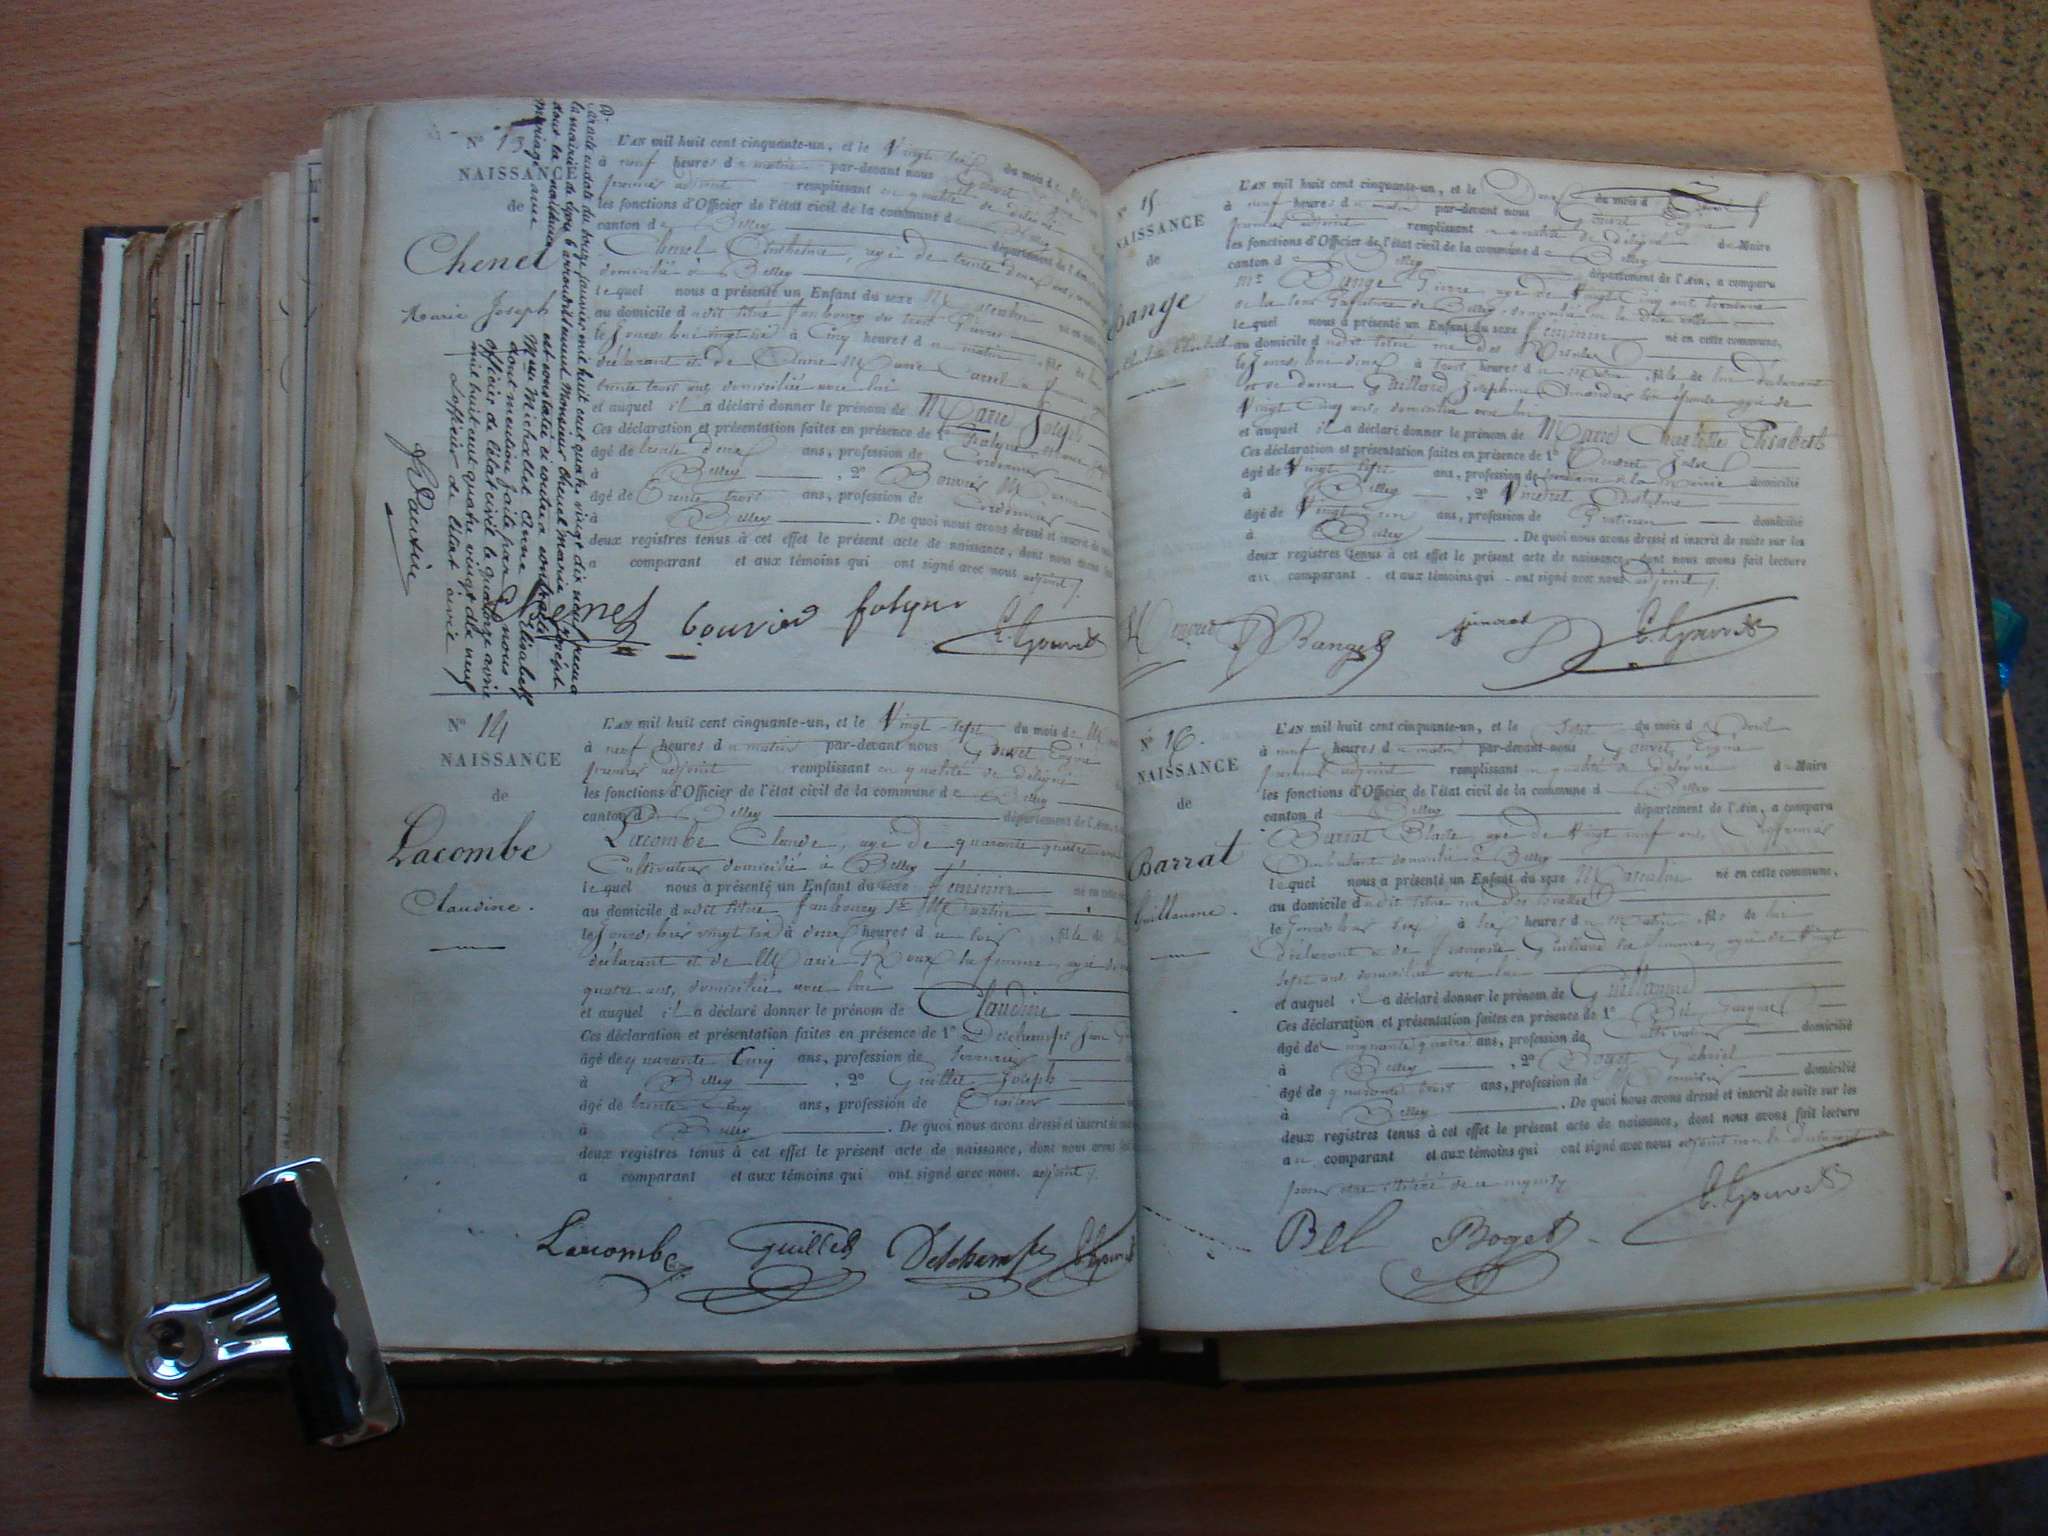 N° 13
NAISSANCE
de
Chenel
Marie Joseph
L'AN mil huit cent cinquante-un, et le Vingt sept du mois de
à neuf heures du matin par-devant nous Gouvet
premier adjoint remplissant en qualité de délégué
les fonctions d'Officier de l'état civil de la commune de
canton de Belley département de l'Ain
Chenel Anthelme, agé de trente deux ans
domicilié à Belley
lequel nous a présenté un Enfant du sexe Masculin né en cette
au domicile dudit situé faubourg des trois
le jourd'hui vingt sept à Cinq heures du matin, fils de lui
déclarant et de Marie
trente trois ans, domiciliée avec lui
et auquel il a déclaré donner le prénom de Marie Joseph
Ces déclaration et présentation faites en présence de 1°
âgé de trente deux ans, profession de Cordonnier
à Belley, 2° Bouvier
âgé de Trente trois ans, profession de Cordonnier
à Belley. De quoi nous avons dressé et inscrit de
deux registres tenus à cet effet le présent acte de naissance, dont nous avons
a comparant et aux témoins qui ont signé avec nous adjoint
mil huit cent quatre vingt dix neuf
la mairie de Lyon 6 arrondissement Monsieur Chenel Marie Joseph
dont la naissance est constatée ci contre a contracté
mariage avec Michallet Anne Elisabeth
dont mention faite par nous
officier de l'état civil le quatorze avril
mil huit cent quatre vingt dix neuf
L'officier de l'état civil
Bouvier
E. Gouvet
N° 14
NAISSANCE
de
Lacombe
Claudine.
L'AN mil huit cent cinquante-un, et le Vingt sept du mois de
à neuf heures du matin par-devant nous Gouvet Eugène
premier adjoint remplissant en qualité de délégué
les fonctions d'Officier de l'état civil de la commune de Belley
canton de Belley département de l'Ain
Lacombe Claude, agé de quarante quatre ans
Cultivateur domicilié à Belley
lequel nous a présenté un Enfant du sexe féminin né en cette
au domicile dudit situé faubourg St Martin
le jour d'hier vingt six à onze heures du soir, fille de lui
déclarant et de Marie Roux sa femme, agée de
quatre ans, domiciliée avec lui
et auquel il a déclaré donner le prénom de Claudine
Ces déclaration et présentation faites en présence de 1° Deschamps Jean
âgé de quarante Cinq ans, profession de
à Belley, 2° Guillet Joseph
âgé de trente Cinq ans, profession de
à Belley. De quoi nous avons dressé et inscrit de
deux registres tenus à cet effet le présent acte de naissance, dont nous avons
a comparant et aux témoins qui ont signé avec nous. adjoint
Lacombe Guillet Deschamps E. Gouvet
N° 15
NAISSANCE
de
Bange
L'AN mil huit cent cinquante-un, et le Deux du mois d'Avril
à neuf heures du matin par-devant nous Gouvet Eugène
premier adjoint remplissant en qualité de délégué de Maire
les fonctions d'Officier de l'état civil de la commune de Belley
canton de Belley département de l'Ain, a comparu
Mr Bange Pierre agé de Vingt Cinq ans
de la sous Préfecture de Belley, domicilié en la dite ville
lequel nous a présenté un Enfant du sexe féminin né en cette commune,
au domicile dudit situé rue des
le jourd'hui deux à trois heures du matin, fille de lui déclarant
et de dame Josephine son épouse agée de
Vingt Cinq ans, domiciliée avec lui
et auquel il a déclaré donner le prénom de Marie Charlotte Elisabeth
Ces déclaration et présentation faites en présence de 1°
âgé de Vingt sept ans, profession de secrétaire à la mairie domicilié
à Belley, 2° Anthelme
âgé de Vingt ans, profession de domicilié
à Belley. De quoi nous avons dressé et inscrit de suite sur les
deux registres tenus à cet effet le présent acte de naissance, dont nous avons fait lecture
au comparant et aux témoins qui ont signé avec nous adjoint
Bange E. Gouvet
N° 16.
NAISSANCE
de
Barrat
Guillaume.
L'AN mil huit cent cinquante-un, et le Sept du mois d'Avril
à neuf heures du matin par-devant nous Gouvet Eugène
premier adjoint remplissant en qualité de délégué de Maire
les fonctions d'Officier de l'état civil de la commune de Belley
canton de Belley département de l'Ain, a comparu
Barrat Blaise, agé de Vingt neuf ans
Ambulant domicilié à Belley
lequel nous a présenté un Enfant du sexe Masculin né en cette commune,
au domicile dudit situé rue des
le jour d'hier six à six heures du matin, fils de lui
Déclarant et de sa femme, agée de Vingt
sept ans domiciliée avec lui
et auquel il a déclaré donner le prénom de Guillaume
Ces déclaration et présentation faites en présence de 1° Bel Jacques
âgé de cinquante quatre ans, profession de Cultivateur domicilié
à Belley, 2° Boget Gabriel
âgé de quarante trois ans, profession de domicilié
à Belley. De quoi nous avons dressé et inscrit de suite sur les
deux registres tenus à cet effet le présent acte de naissance, dont nous avons fait lecture
au comparant et aux témoins qui ont signé avec nous adjoint non le déclarant
pour être illitéré de ce requis
Bel Boget E. Gouvet